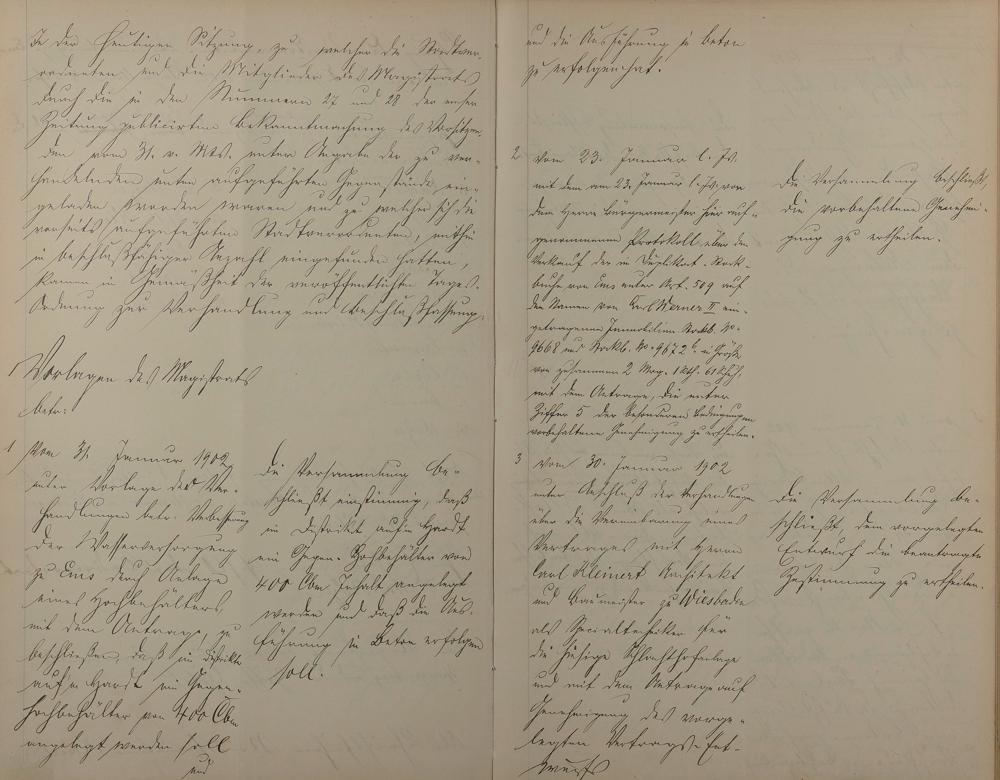 In der heutigen Sitzung, zu welcher die Stadtver-
ordneten und die Mitglieder des Magistrats
durch die in den Nummern 27 und 28 der emser
Zeitung publicirten Bekanntmachung des Vorsitzen-
den vom 31. v. Mts. unter Angabe der zu ver-
handelnden unten aufgeführten Gegenstände ein-
geladen worden waren und zu welcher sich die
vorseits aufgeführten Stadtverordneten, mithin
in beschlußfähiger Anzahl eingefunden hatten,
kamen in Gemäßheit der veröffentlichten Tages-
Ordnung zur Verhandlung und Beschlußfassung:
1 Vorlagen des Magistrats
betr:
1 Vom 31. Januar 1902
unter Vorlage der Ver-
handlungen betr. Verbesserung
der Wasserversorgung
zu Ems durch Anlage
eines Hochbehälters
mit dem Antrage, zu
beschließen, daß im Distrikte
auf'm Hardt ein Gegen-
hochbehälter von 400 Cbm
angelegt werden soll
und
Die Versammlung be-
schließt einstimmig, daß
im Distrikt auf'm Hardt
ein Gegen-Hochbehälter von
400 Cbm Inhalt angelegt
werden und daß die Aus-
führung in Beton erfolgen
soll.
und die Ausführung in Beton
zu erfolgen hat.
2 Vom 23. Januar l. Js.
mit dem am 23. Januar l. Js. von
dem Herrn Bürgermeister hier auf-
genommenen Protokoll über den
Verkauf der im Duplikat-Stock-
buche von Ems unter Art. 509 auf
den Namen von Karl Werner II ein-
getragenen Immobilien Stockb. No.
9668 und Stockb. No. 9672 b. in Größe
von zusammen 2 Mrg. 1 Rth. 61 Schuh,
mit dem Antrage, die unter
Ziffer 5 der besonderen Bedingungen
vorbehaltene Genehmigung zu ertheilen.
Die Versammlung beschließt,
die vorbehaltene Genehmi-
gung zu ertheilen.
3 Vom 30. Januar 1902
unter Anschluß der Verhandlungen
über die Vereinbarung eines
Vertrages mit Herrn
Carl Kleinert Architekt
und Baumeister zu Wiesbaden
als Specialtechniker für
die hiesige Schlachthofanlage
und mit dem Antrage auf
Genehmigung des vorge-
legten Vertrags-Ent-
wurfs
Die Versammlung be-
schließt, dem vorgelegten
Entwurf die beantragte
Zustimmung zu ertheilen.